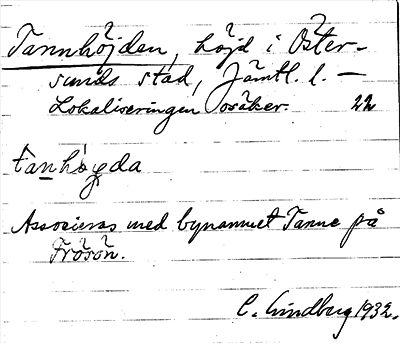 Tannhöjden, höjd i Öster-
sunds stad, Jämtl. l. —
Lokaliseringen osäker. 22
tanhöɡda
Associeras med bynamnet Tanne på
Frösön.
C. Lindberg 1932.